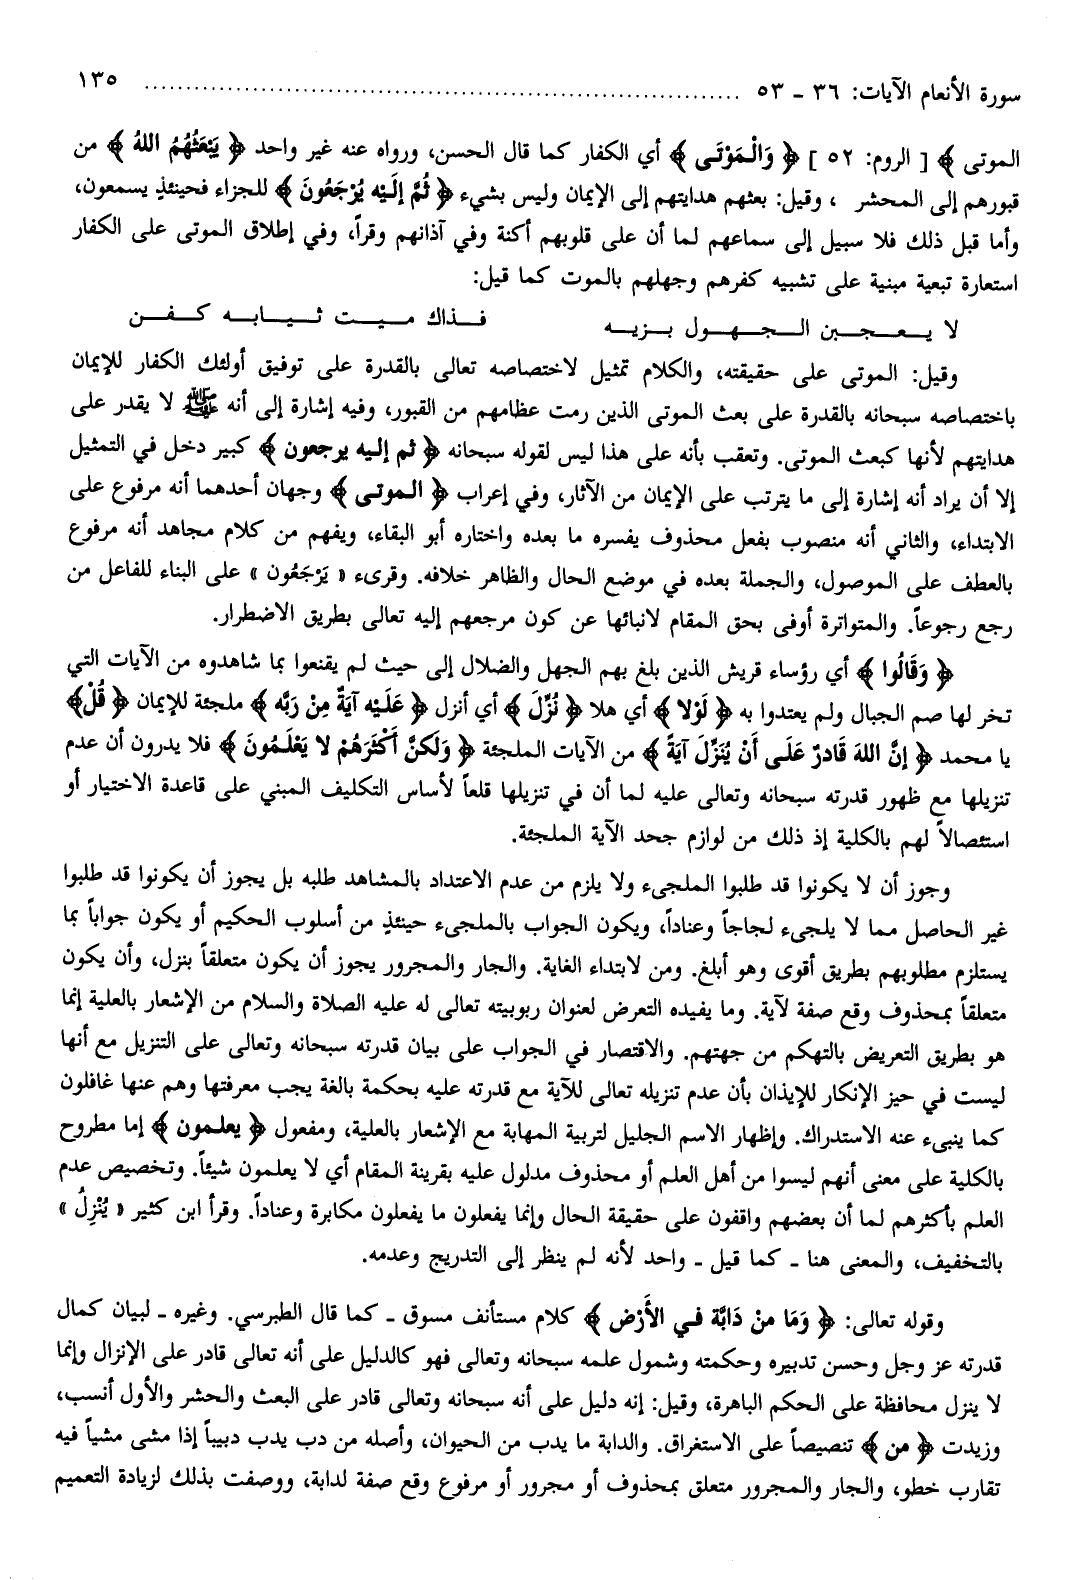 سورة الأنعام الآيات: ٣٦ ـ ٥٣ ........................................................................ ١٣٥
الموتى ﴾ [ الروم: ٥٢ ] ﴿ وَالْمَوْتَى ﴾ أي الكفار كما قال الحسن، ورواه عنه غير واحد ﴿ يَبْعَثُهُمُ اللهُ ﴾ من
قبورهم إلى المحشر ، وقيل: بعثهم هدايتهم إلى الإيمان وليس بشيء ﴿ ثُمَّ إِلَيْه يُرْجَعُونَ ﴾ للجزاء فحينئذٍ يسمعون،
وأما قبل ذلك فلا سبيل إلى سماعهم لما أن على قلوبهم أكنة وفي آذانهم وقراً، وفي إطلاق الموتى على الكفار
استعارة تبعية مبنية على تشبيه كفرهم وجهلهم بالموت كما قيل:
لا يعجبن الجهول بزيه فذاك ميت ثيابه كفن
وقيل: الموتى على حقيقته، والكلام تمثيل لاختصاصه تعالى بالقدرة على توفيق أولئك الكفار للإيمان
باختصاصه سبحانه بالقدرة على بعث الموتى الذين رمت عظامهم من القبور، وفيه إشارة إلى أنه ﷺ لا يقدر على
هدايتهم لأنها كبعث الموتى. وتعقب بأنه على هذا ليس لقوله سبحانه ﴿ ثم إليه يرجعون ﴾ كبير دخل في التمثيل
إلا أن يراد أنه إشارة إلى ما يترتب على الإيمان من الآثار، وفي إعراب ﴿ الموتى ﴾ وجهان أحدهما أنه مرفوع على
الابتداء، والثاني أنه منصوب بفعل محذوف يفسره ما بعده واختاره أبو البقاء، ويفهم من كلام مجاهد أنه مرفوع
بالعطف على الموصول، والجملة بعده في موضع الحال والظاهر خلافه. وقرىء « يَرْجَعُون » على البناء للفاعل من
رجع رجوعاً. والمتواترة أوفى بحق المقام لانبائها عن كون مرجعهم إليه تعالى بطريق الاضطرار.
﴿ وَقَالُوا ﴾ أي رؤساء قريش الذين بلغ بهم الجهل والضلال إلى حيث لم يقنعوا بما شاهدوه من الآيات التي
تخر لها صم الجبال ولم يعتدوا به ﴿ لَوْلا ﴾ أي هلا ﴿ نُزِّلَ ﴾ أي أنزل ﴿ عَلَيْه آيَةٌ مِنْ رَبِّه ﴾ ملجئة للإيمان ﴿ قُلْ﴾
يا محمد ﴿ إنَّ اللهَ قَادرٌ عَلَى أنْ يُنَزِّلَ آيَةً ﴾ من الآيات الملجئة ﴿ وَلَكنَّ أَكْثَرَهُمْ لا يَعْلَمُونَ ﴾ فلا يدرون أن عدم
تنزيلها مع ظهور قدرته سبحانه وتعالى عليه لما أن في تنزيلها قلعاً لأساس التكليف المبني على قاعدة الاختيار أو
استئصالاً لهم بالكلية إذ ذلك من لوازم جحد الآية الملجئة.
وجوز أن لا يكونوا قد طلبوا الملجىء ولا يلزم من عدم الاعتداد بالمشاهد طلبه بل يجوز أن يكونوا قد طلبوا
غير الحاصل مما لا يلجىء لجاجاً وعناداً، ويكون الجواب بالملجىء حينئذٍ من أسلوب الحكيم أو يكون جواباً بما
يستلزم مطلوبهم بطريق أقوى وهو أبلغ. ومن لابتداء الغاية. والجار والمجرور يجوز أن يكون متعلقاً بنزل، وأن يكون
متعلقاً بمحذوف وقع صفة لآية. وما يفيده التعرض لعنوان ربوبيته تعالى له عليه الصلاة والسلام من الإشعار بالعلية إنما
هو بطريق التعريض بالتهكم من جهتهم. والاقتصار في الجواب على بيان قدرته سبحانه وتعالى على التنزيل مع أنها
ليست في حيز الإنكار للإيذان بأن عدم تنزيله تعالى للآية مع قدرته عليه بحكمة بالغة يجب معرفتها وهم عنها غافلون
كما ينبىء عنه الاستدراك. وإظهار الاسم الجليل لتربية المهابة مع الإشعار بالعلية، ومفعول ﴿ يعلمون ﴾ إما مطروح
بالكلية على معنى أنهم ليسوا من أهل العلم أو محذوف مدلول عليه بقرينة المقام أي لا يعلمون شيئاً. وتخصيص عدم
العلم بأكثرهم لما أن بعضهم واقفون على حقيقة الحال وإنما يفعلون ما يفعلون مكابرة وعناداً. وقرأ ابن كثير « يُنْزِلُ »
بالتخفيف، والمعنى هنا ـ كما قيل ـ واحد لأنه لم ينظر إلى التدريج وعدمه.
وقوله تعالى: ﴿ وَمَا منْ دَابَّة في الأَرْض ﴾ كلام مستأنف مسوق ـ كما قال الطبرسي. وغيره ـ لبيان كمال
قدرته عز وجل وحسن تدبيره وحكمته وشمول علمه سبحانه وتعالى فهو كالدليل على أنه تعالى قادر على الإنزال وإنما
لا ينزل محافظة على الحكم الباهرة، وقيل: إنه دليل على أنه سبحانه وتعالى قادر على البعث والحشر والأول أنسب،
وزيدت ﴿ من ﴾ تنصيصاً على الاستغراق. والدابة ما يدب من الحيوان، وأصله من دب يدب دبيباً إذا مشى مشياً فيه
تقارب خطو، والجار والمجرور متعلق بمحذوف أو مجرور أو مرفوع وقع صفة لدابة، ووصفت بذلك لزيادة التعميم